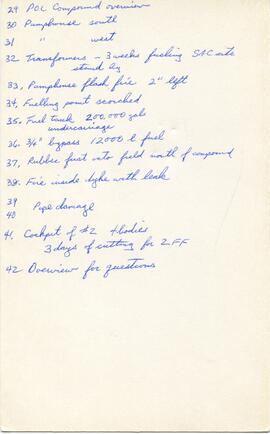 29 POL Compound overview
30 Pumphouse south
31 " west
32 Transformers - 3 weeks fueling SAC site
stand by
33, Pumphouse flash fire 2" left
34. Fuelling point scorched
35. Fuel tank 200,000 gals
undercarriage
36. 3/4" bypass 12000 l fuel
37, Rubble first into field north of compound
38. Fire inside dyke with leak
39
40 Pipe damage
41. Cockpit of #2 4 bodies
3 days of cutting for 2 FF
42 Overview for questions